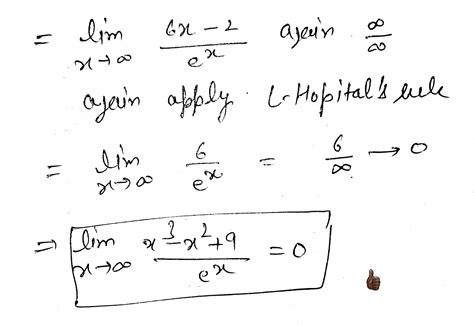 = lim x→∞ 6x - 2 / e^x again ∞/∞
again apply L-Hopital's rule
= lim x→∞ 6 / e^x = 6/∞ → 0
⇒ lim x→∞ x^3 - x^2 + 9 / e^x = 0